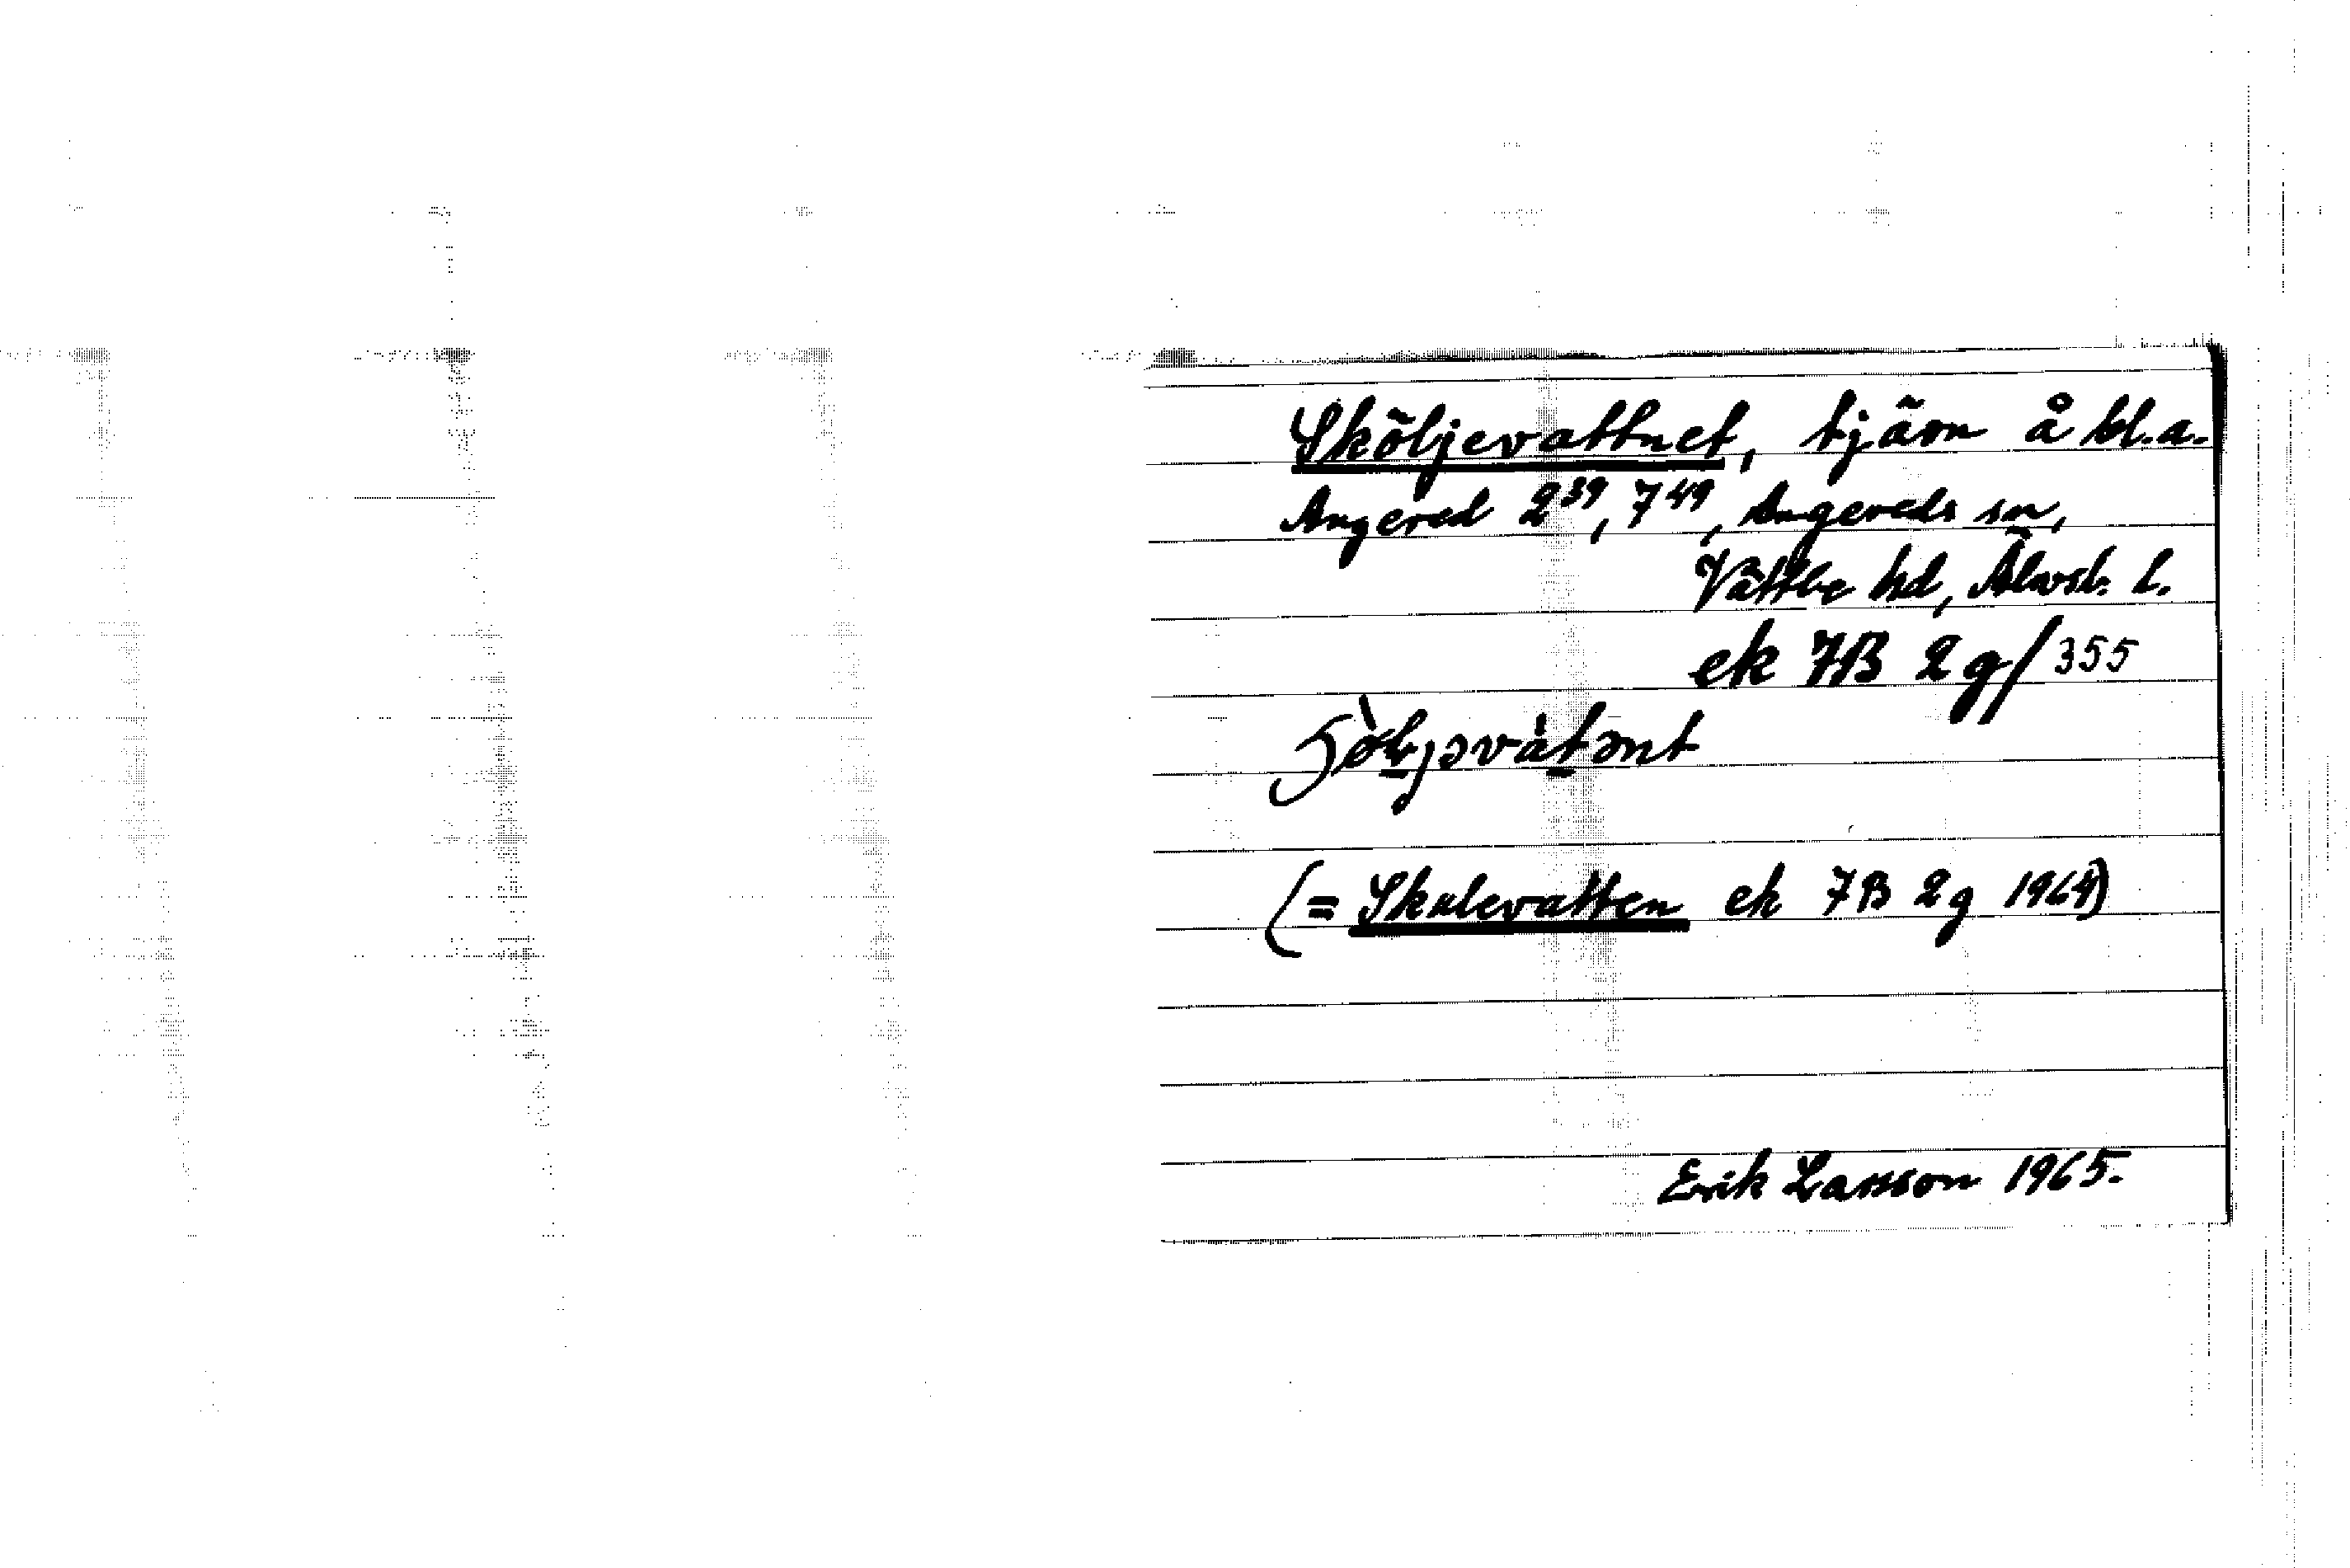 Sköljevattnet, tjärn å bl.a.
Angered 2³⁹, 7⁴⁹, Angereds sn,
Vättle hd, Älvsb. l.
ek 7B 2g/355
(= Skulevatten ek 7B 2g 1964)
Erik Larsson 1965.